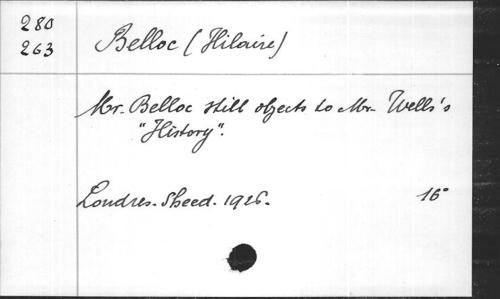 280
263
Belloc (Hilaire)
Mr. Belloc still objects to Mr. Wells's
"History".
Londres. Sheed. 1926.
16°